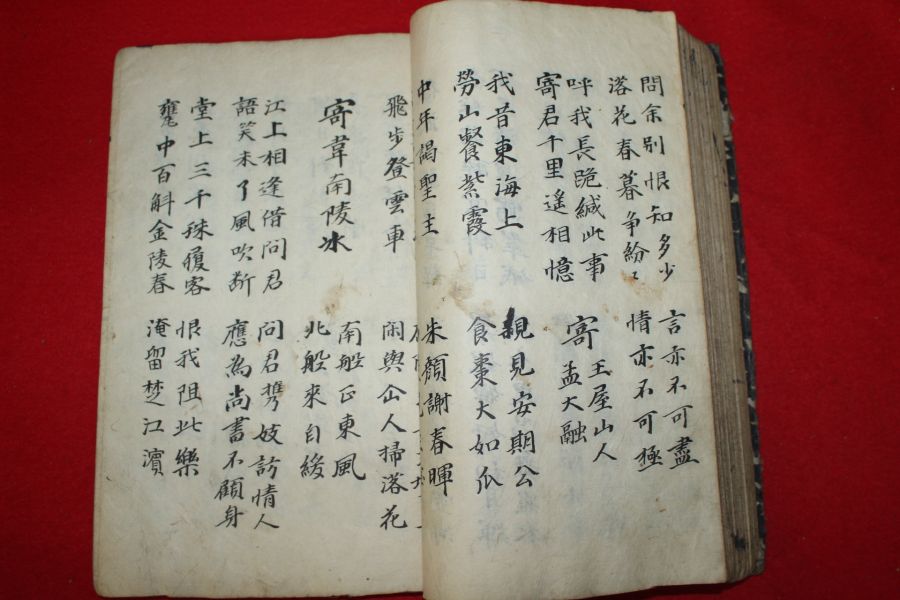 問余別恨知多少
言亦不可盡
落花春暮争紛〻
情亦不可極
呼我長跪緘此事
寄君千里遙相憶
寄王屋山人
孟大融
我昔東海上
親見安期公
勞山餐紫霞
食棗大如瓜
中年謁聖主
朱顔謝春暉
飛步登雲車
閑與仚人掃落花
寄韋南陵冰
南船正東風
北船來自緩
江上相逢借問君
問君携妓訪情人
語笑未了風吹断
應為尚書不顧身
堂上三千珠履客
恨我阻此樂
甕中百斛金陵春
淹留楚江濱